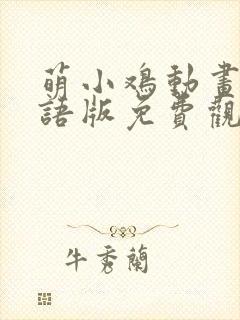 萌小鸡動畫
語版免費觀
牛秀蘭